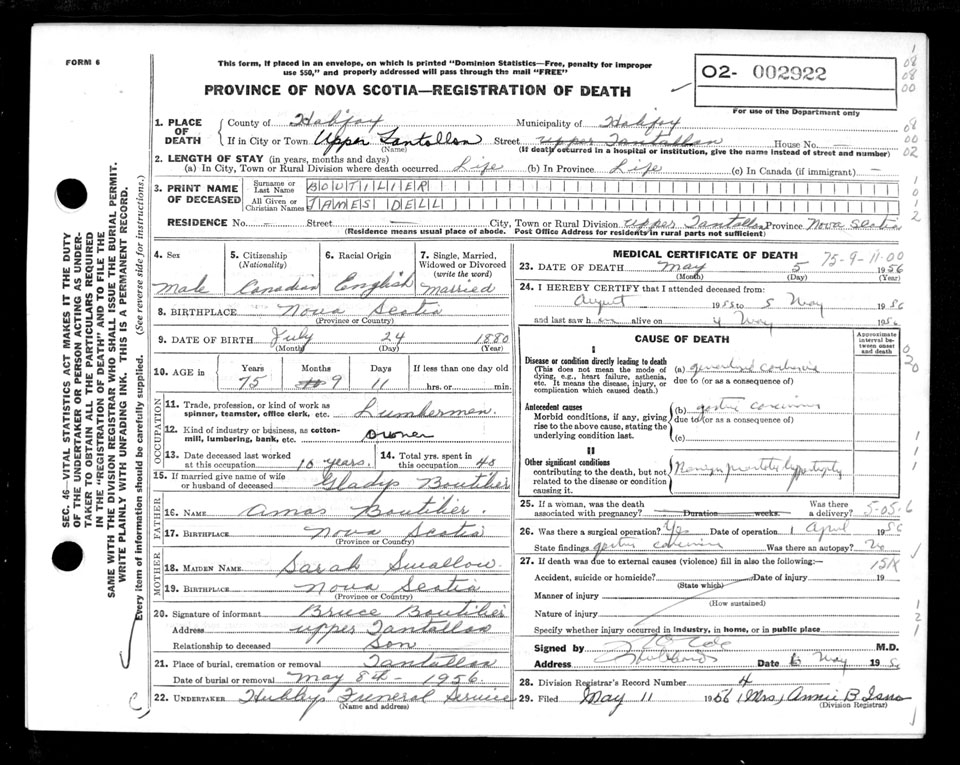 FORM 6
This form, if placed in an envelope, on which is printed "Dominion Statistics—Free, penalty for improper
use $50," and properly addressed will pass through the mail "FREE"
02- 002922
PROVINCE OF NOVA SCOTIA—REGISTRATION OF DEATH
For use of the Department only
1. PLACE OF DEATH
County of Halifax Municipality of Halifax
If in City or Town Upper Tantallon Street Upper Tantallon House No. —
(Name) (If death occurred in a hospital or institution, give the name instead of street and number)
2. LENGTH OF STAY (in years, months and days)
(a) In City, Town or Rural Division where death occurred Life (b) In Province Life (c) In Canada (if immigrant) —
3. PRINT NAME OF DECEASED
Surname or Last Name BOUTILIER
All Given or Christian Names JAMES DELL
RESIDENCE No. — Street — City, Town or Rural Division Upper Tantallon Province Nova Scotia
(Residence means usual place of abode. Post Office Address for residents in rural parts not sufficient)
4. Sex
Male
5. Citizenship (Nationality)
Canadian
6. Racial Origin
English
7. Single, Married, Widowed or Divorced (write the word)
Married
8. BIRTHPLACE Nova Scotia
(Province or Country)
9. DATE OF BIRTH July 24 1880
(Month) (Day) (Year)
10. AGE IN
Years Months Days If less than one day old
75 9 11 hrs. or min.
OCCUPATION
11. Trade, profession, or kind of work as
spinner, teamster, office clerk, etc. Lumberman.
12. Kind of industry or business, as cotton-
mill, lumbering, bank, etc. owner
13. Date deceased last worked at this occupation 10 years.
14. Total yrs. spent in this occupation 40
15. If married give name of wife
or husband of deceased Gladys Boutilier
FATHER
16. NAME Amos Boutilier.
17. BIRTHPLACE Nova Scotia
(Province or Country)
MOTHER
18. MAIDEN NAME Sarah Swallow.
19. BIRTHPLACE Nova Scotia
(Province or Country)
20. Signature of informant Bruce Boutilier
Address upper Tantallon
Relationship to deceased Son
21. Place of burial, cremation or removal Tantallon
Date of burial or removal May 8th - 1956.
22. UNDERTAKER Funeral Service
(Name and address)
MEDICAL CERTIFICATE OF DEATH 75-9-11-00
23. DATE OF DEATH May 5 1956
(Month) (Day) (Year)
24. I HEREBY CERTIFY that I attended deceased from:
August 1955 to 5 May 1956
and last saw h im alive on 4 May 1956
CAUSE OF DEATH
Approximate interval between onset and death
I
Disease or condition directly leading to death
(This does not mean the mode of
dying, e.g., heart failure, asthenia,
etc. It means the disease, injury, or
complication which caused death.)
(a) generalized
due to (or as a consequence of)
Antecedent causes
Morbid conditions, if any, giving
rise to the above cause, stating the
underlying condition last.
(b) gastric carcinoma
due to (or as a consequence of)
(c)
II
Other significant conditions
contributing to the death, but not
related to the disease or condition
causing it.
Benign prostatic hypertrophy
25. If a woman, was the death Was there
associated with pregnancy? Duration weeks. a delivery? 5-05-6
26. Was there a surgical operation? Yes Date of operation 1 April 1956
State findings gastric carcinoma Was there an autopsy? No
27. If death was due to external causes (violence) fill in also the following:— 151X
Accident, suicide or homicide? Date of injury 19
(State which)
Manner of injury
(How sustained)
Nature of injury
Specify whether injury occurred in industry, in home, or in public place
Signed by Cole M.D.
Address Hubbards Date 6 May 1956
28. Division Registrar's Record Number 4
29. Filed May 11 1956 (Mrs) Annie B.
(Division Registrar)
SEC. 46—VITAL STATISTICS ACT MAKES IT THE DUTY
OF THE UNDERTAKER OR PERSON ACTING AS UNDER-
TAKER TO OBTAIN ALL THE PARTICULARS REQUIRED
IN THE "REGISTRATION OF DEATH" AND TO FILE THE
SAME WITH THE DIVISION REGISTRAR WHO SHALL ISSUE THE BURIAL PERMIT.
WRITE PLAINLY WITH UNFADING INK. THIS IS A PERMANENT RECORD.
Every item of information should be carefully supplied. (See reverse side for instructions.)